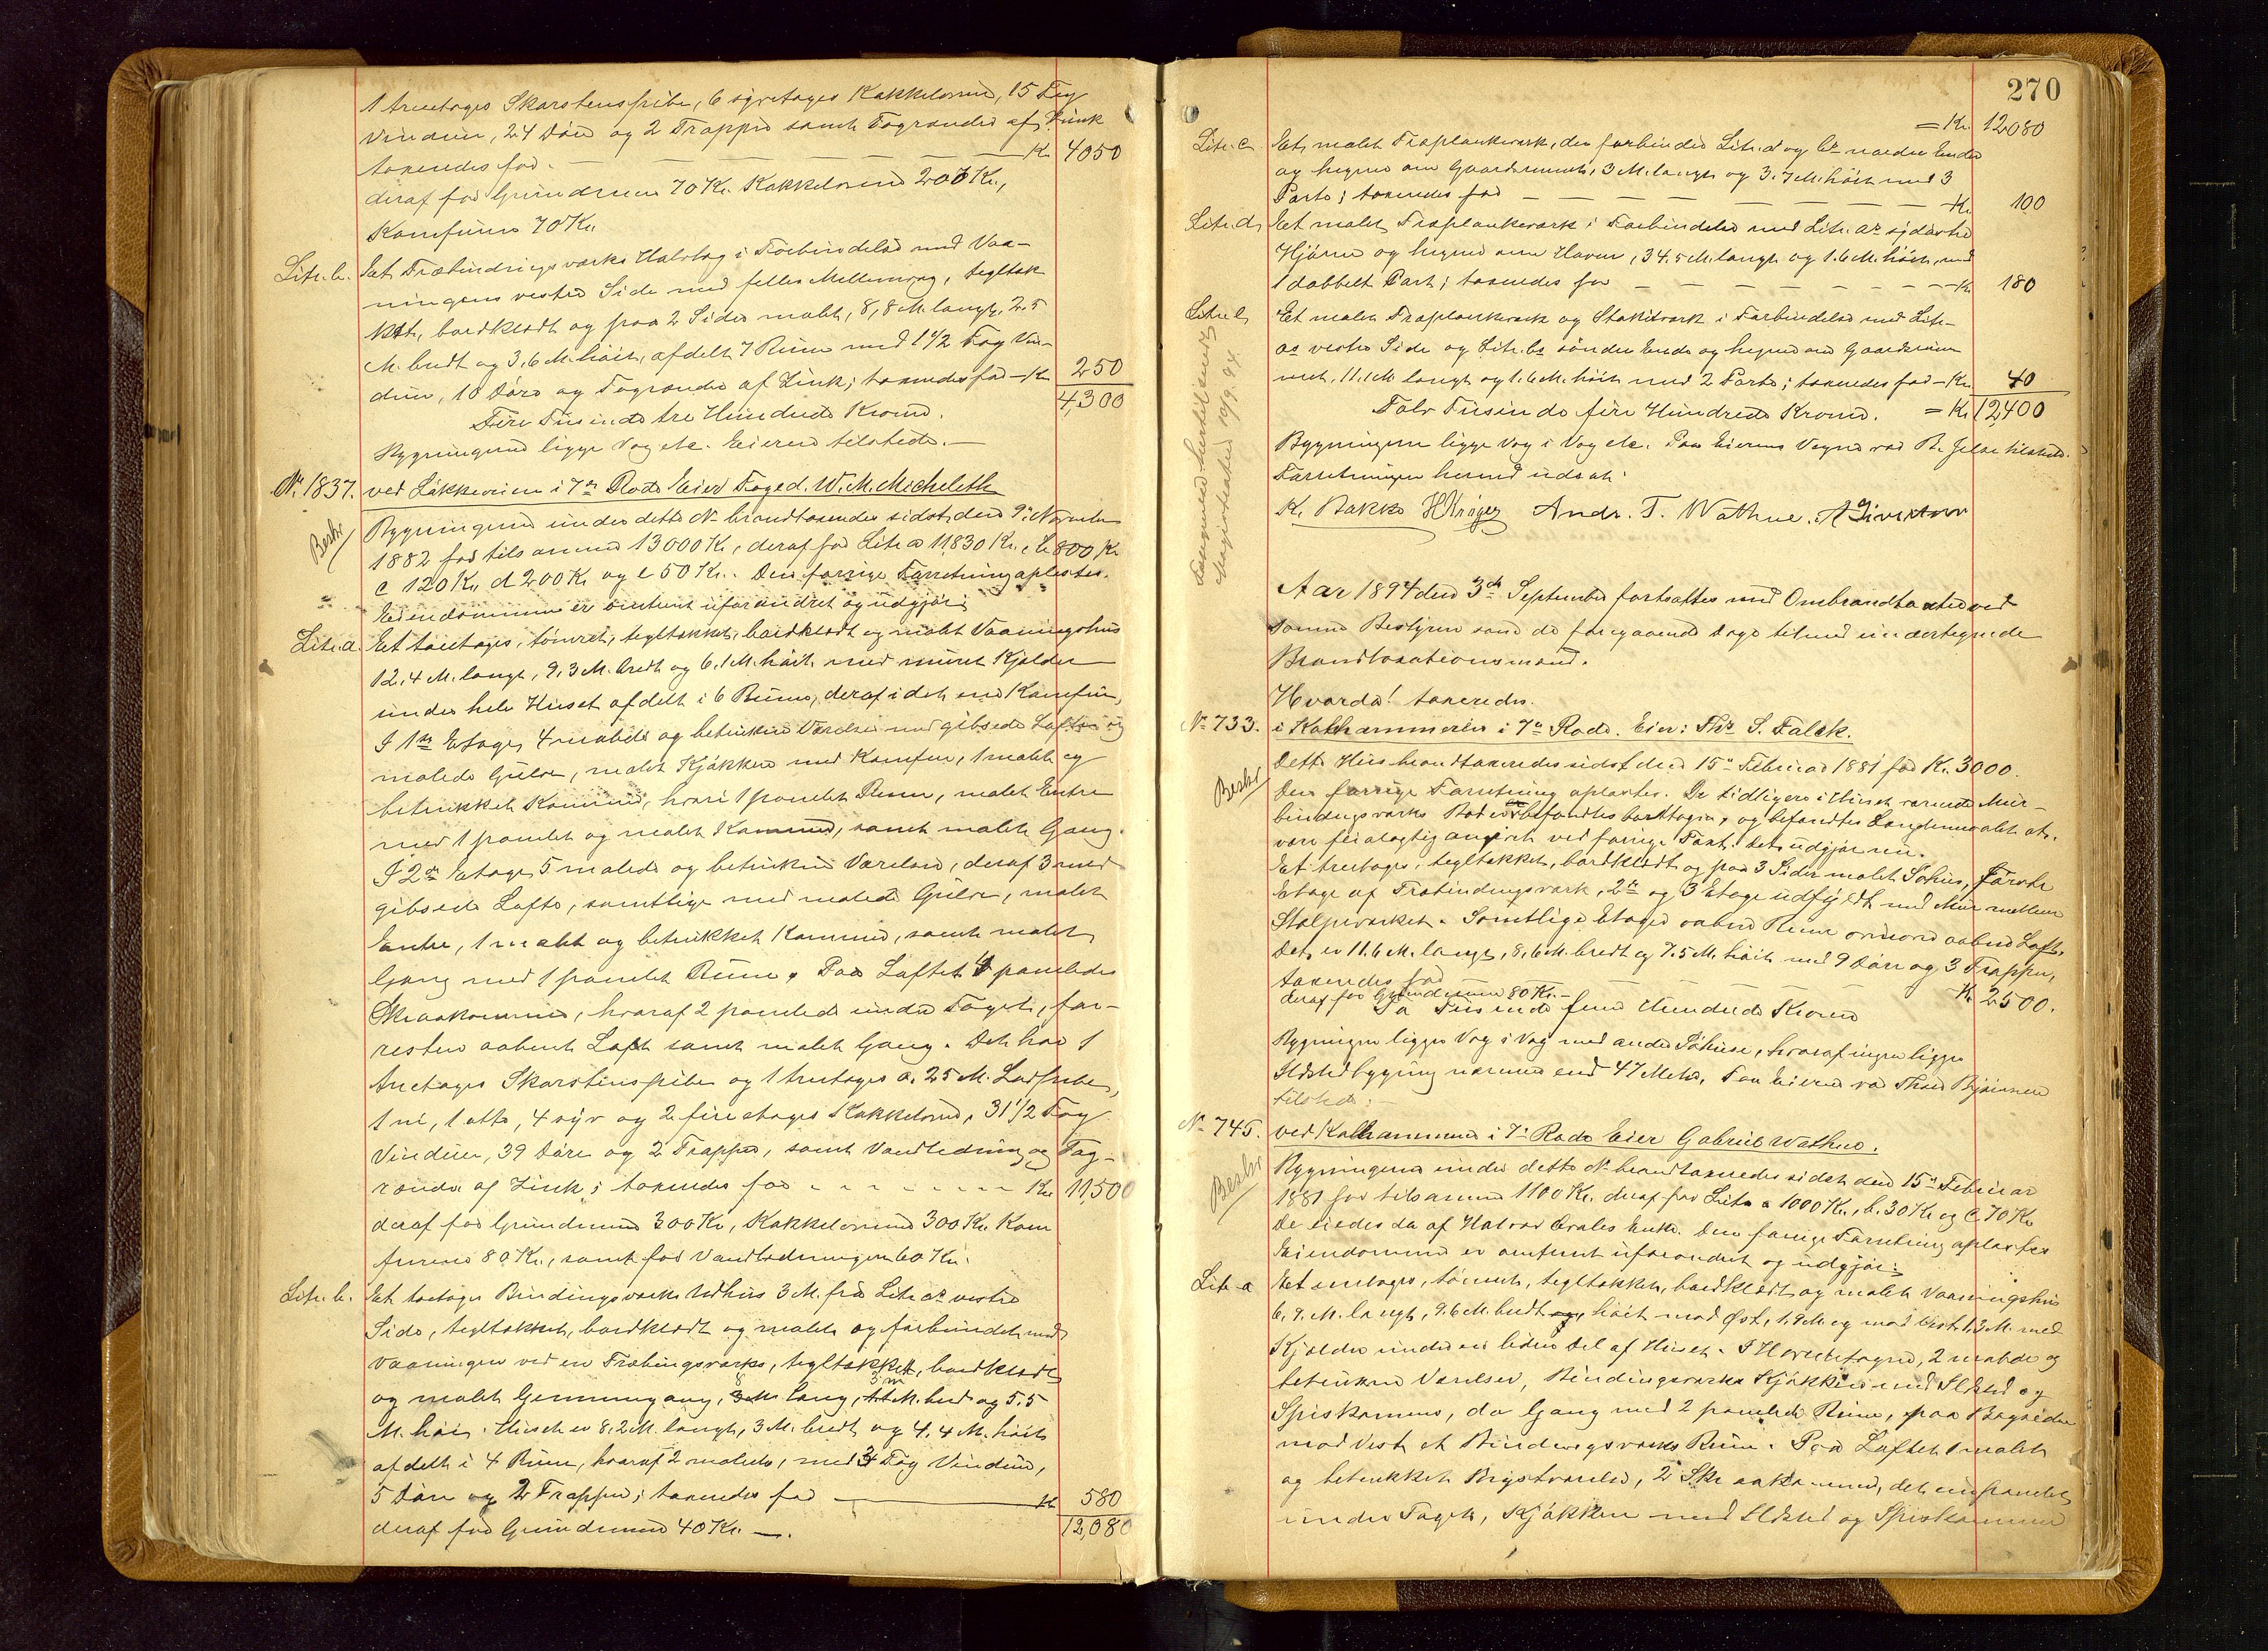 1 treetages Skorstenspibe, 6 syvetages Kakkelovne, 15 Fag
Vinduer, 24 Döre og 2 Trapper samt Tagrender af Zink
taxeredes for - Kr. 4050
deraf for Grundmur 70 Kr. Kakkelovne 200 Kr.,
Komfuren 70 Kr.
Litr. b. Et Træbindingsværks Halvtag i Forbindelse med Vaa-
ningens vestre Side med fælles Mellemvæg, tegltæk-
ket, bordklædt og paa 2 Sider malet, 8,8 M. langt, 2.5
M. bredt og 3,6 M. höit, afdelt 7 Rum med 1 1/2 Fag Vin-
duer, 10 Döre og Tagrender af Zink; taxeredes for - Kr. 250
4,300
Fire Tusinde tre Hundrede Kroner.
Bygningerne ligge Vag etc. Eieren tilstede. -
No 1837. ved Lökkeveien i 7de Rode Eier Foged. W. M. Micheleth
Beskr
Bygningerne under dette No brandtaxeredes sidst den 9de Novemb
1882 for tilsammen 13000 Kr., deraf for Litr. a 11,830 Kr., b. 800 Kr
c 120 Kr, d 200 Kr og e 50 Kr. Den forrige Forretning oplæstes.
Eiendommen er omtrent uforandret og udgjör:
Litr. a. Et toetages, tömret, tegltækket, bordklædt og malet Vaaningshus
12,4 M. langt, 9,3 M. bredt og 6,1 M. höit med muret Kjelder
under hele Huset afdelt i 6 Rum, deraf i det ene Komfur,
I 1ste Etage, 4 malede og betrukne Værelser med gibsede Lofter og
malede Gulve, malet Kjökken med Komfur, 1 malet og
betrukket Kammer, hvori 1 panelet Rum, malet Entre
med 1 panelet og malet Kammer, samt malet Gang.
I 2den Etage, 5 malede og betrukne Værelser, deraf 3 med
gibsede Lofte, samtlige med malede Gulve, malet
Entre, 1 malet og betrukket Kammer, samt malet
Gang med 1 panelet Rum. Paa Loftet 4 panelede
Skraakammer, hvoraf 2 panelede under Taget, for-
resten aabent Loft samt malet Gang. Det har 1
treetages Skorstenspibe og 1 treetages a. 25 M. Lodpibe,
1 ni, 1 otte, 4 syv og 2 fireetages Kakkelovne, 31 1/2 Fag
Vinduer, 39 Döre og 2 Trapper, samt Vandledning og Tag-
render af Zink; taxeredes for - Kr. 11,500
deraf for Grundmur 300 Kr, Kakkelovnene 300 Kr. Kom
furene 80 Kr., samt for Vandledningen 60 Kr.
Litr. b. Et toetages Bindingsværks Udhus 3 M. fra Litr. as vestre
Side, tegltækket, bordklædt og malet og forbundet med
Vaaningen ved en Træbingsværks, tegltækket, bordklædt
og malet Gjennemgang, 3 M. lang, M. bred og 5.5
M. höi. Huset er 8,2 M. langt, 3 M. bredt og 4,4 M. höit
afdelt i 4 Rum, hvoraf 2 malede, med 3 Fag Vinduer,
5 Döre og 2 Trapper; taxeredes for - Kr 580
deraf for Grundmur 40 Kr. -. 12,080
270
= Kr. 12,080
Litr. c Et malet Træplankeværk, der forbinder Litr. d og bs nordre Ende
og hegner om Gaardsrummet, 3 M. langt og 3.7 M. höit med 3
Porte; taxeredes for - Kr. 100
Litr. d, Et malet Træplankeværk i Forbindelse med Litr. as sydöstre
Hjörne og hegner om Haven, 34.5 M. langt og 1.6 M. höit, med
1 dobbelt Port; taxeredes for - Kr 180
Litr. e, Et malet Træplankeværk og Stakitværk i Forbindelse med Litr-
as vestre Side og Litr. bs söndre Ende og hegner om Gaardsrum
met, 11.1 M langt og 1.6 M. höit med 2 Porte; taxeredes for - Kr. 40
Tolv Tusinde fire Hundrede Kroner. = Kr 12,400
Bygningerne ligge Vag i Vag etc. Paa Eierens Vegne var B. Jelse tilstede.
Forretningen hermed udsat.
K. Bakke HKröger Andr. T. Wathne.
Aar 1894 den 3de September fortsattes med Ombrandtaxten ved
samme Bestyrer som de foregaaende Dage tilmed undertegnede
Brandtaxationsmænd.
Hvorda! taxeredes.
No 733. i Kalhammeren i 7de Rode. Eier: Ths S. Falck.
Beskr
Dette Hus brandtaxeredes sidst den 15de Februar 1881 for Kr. 3000.
Den forrige Forretning oplæstes. De tidligere i Huset værende Mur-
bindingsværks Boder befandtes borttagne, og befandtes Længdemaalet at
være feilagtig angivet ved forrige Taxt. Det udgjör nu.
Et treetages, tegltækket, bordklædt og paa 3 Sider malet Söhus, förste
Etage af Træbindingsværk, 2de og 3 Etage udfyldt med Mur mellem
Stolpeværket. Samtlige Etager aabne Rum ovenover aabent Loft.
Det er 11.6 M. langt, 8,6 M. bredt og 7.5 M. höit med 9 Döre og 3 Trapper,
taxeredes for - Kr 2500.
deraf for Grundmur 80 Kr. -
To Tusinde fem Hundrede Kroner
Bygningen ligger Vag i Vag med andre Söhuse, hvoraf ingen ligger
Ildstedbygning nærmere end 47 Meter, Paa Eierens var Thore Bjönnen
tilstede. -
No 745. ved Kalhammeren i 7de Rode Eier Gabriel Wathne.
Beskr
Bygningerne under dette No brandtaxeredes sidst den 15de Februar
1881 for tilsammen 1100 Kr. deraf for Litr a 1000 Kr., b. 30 Kr og c 70 Kr
De eiedes da af Halvor Enke. Den forrige Forretning oplæstes
Eiendommen er omtrent uforandret og udgjör:
Litr. a Et enetages, tömret, tegltækket, bordklædt og malet Vaaningshus
6,9 M. langt, 9.6 M. bredt, höit mod Öst, 1,9 M. og mod Vest 1,3 M. med
Kjelder under en liden Del af Huset. I Hovedetagen, 2 malede og
betrukne Værelser, Bindingsværks Kjökken med Ildsted og
Spiskammer, do Gang med 2 panelede Rum, paa Bagsiden
mod Vest et Bindingsværks Rum. Paa Loftet 1 malet
og betrukket Kvistværelse, 2 Skraakammer, det ene panelet
under Taget, Kjökken med Ildsted og Spiskammer